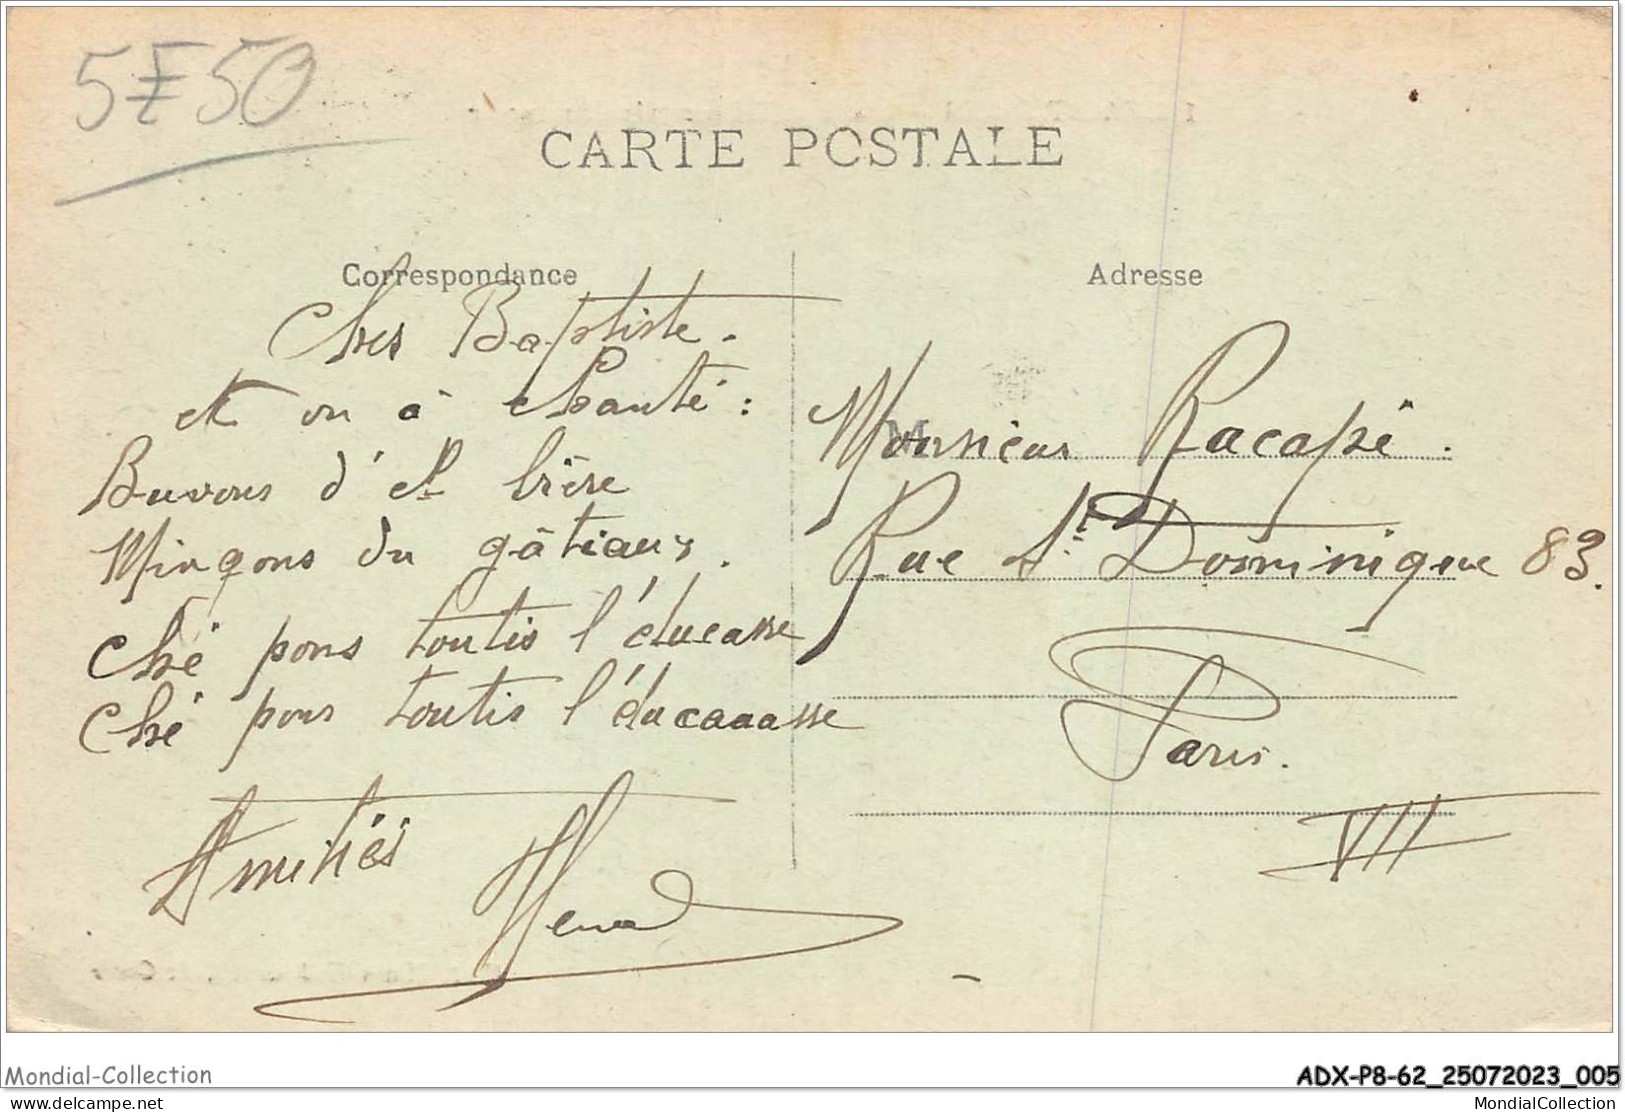 5F50
CARTE POSTALE
Correspondance
Adresse
Cher Baptiste.
et on à chanté :
Buvons d' el bière
Minqons du gâtiaux.
Ché pons toutis l'ducasse
Ché pons toutis l'ducaaasse
Amitiés
Monsieur Racapé.
Rue St Dominique 83.
Paris.
VII
Mondial-Collection
ADX-P8-62_25072023_005
delcampe.net
MondialCollection